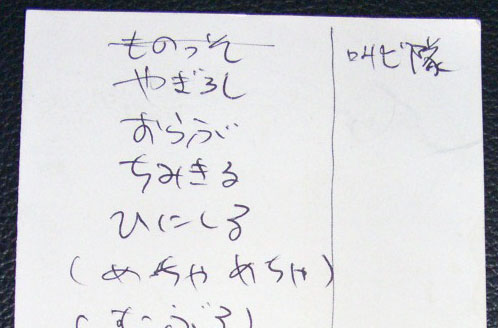 ものっそ
やぎろし
おらぶ
ちみきる
ひにしる
(めちゃめちゃ)
叫ビ隊